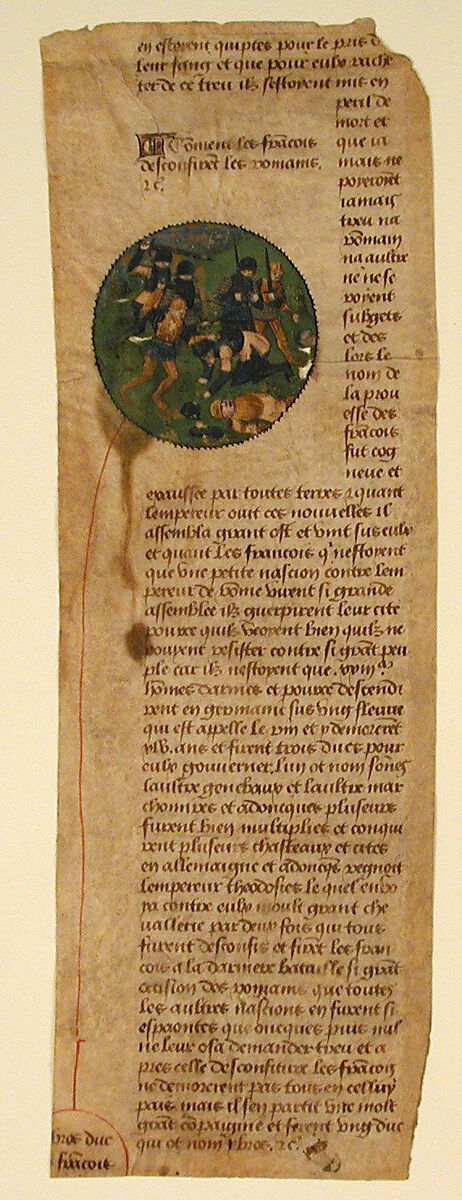 en estoyent quiptes pour le pris d
leur sang et que pour eulx rache
tez de ce treu ilz sestoyent mis en
peril de
mort et
que ia
mais ne
poyeroiēt
iamais
treu na
rōmain
na aultre
ne ne se
royent
subgets
et des
lors le
nom de
la prou
esse des
frācois
fut cog
neue et
Coment les frācois
desconfirēt les romains.
⁊c̄.
exaussee par toutes terres ⁊ quant
lempereur ouit ces nouvelles il
assembla grant ost et vint sus eulx
et quant les francois q' nestoyent
que vne petite nascion contre lem
pereur de rōme virent si grande
assemblee ilz guerpirent leur cite
pource quilz veoyent bien quilz ne
pouyent resister contre si grāt peu
ple car ilz nestoyent que
hōmes darmes et pource descendi
rent en germanie sus vng fleuve
qui est appelle le rin et y demorerēt
ans et furent trois ducs pour
eulx gouverner. lun ot nom
laultre genebaux et laultre mar
chomires et adoncques pluseurs
furent bien multiplies et conqui
rent pluseurs chasteaux et cites
en allemaigne et adoncq̄s regnoit
lempereur theodosies le quel envo
ya contre eulx moult grant che
vallerie par deux fois qui tous
furent desconfis et firēt les fran
cois a la darniere bataille si grāt
occision des romains que toutes
les aultres nascions en furent si
espaontes que oncques puis nul
ne leur osa demander treu et a
pres celle desconfiture les frācois
ne demorerent pas tous en celluy
pais mais il sen partit vne molt
grāt cōpaignie et ferent vng duc
qui ot nom ybros. ⁊c̄.
bros duc
s frācois